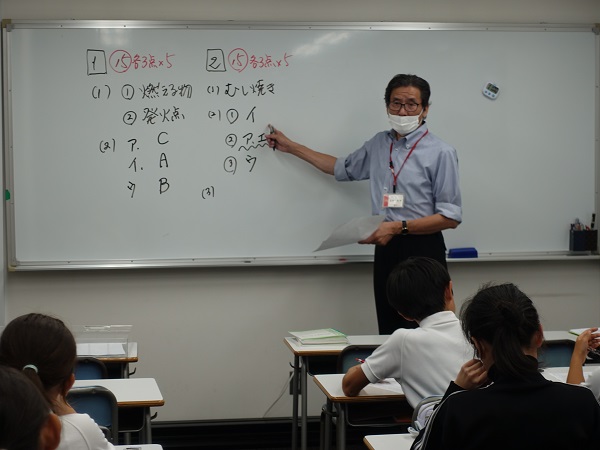 1 ⑮ 各3点×5
(1) ① 燃える物
② 発火点
(2) ア. C
イ. A
ウ B
2 ⑮ 各3点×5
(1) むし焼き
(2) ① イ
② ア.エ
③ ウ
(3)